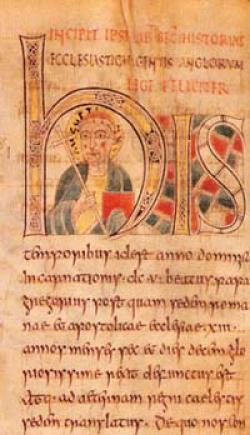 INCIPIT HISTORIAE
ECCLESIASTICAE GENTIS ANGLORUM
LEGE FELICITER
hIS
temporibus idest anno domini
incarnationis .dc.v. beatus papa
gregorius post quam sedem roma
nae et apostolicae ecclesiae .xiii.
annos menses sex et dies decem glo
riosissime rexit defunctus est
atq; ad aeternam regni caelestis
sedem translatus. De quo nos